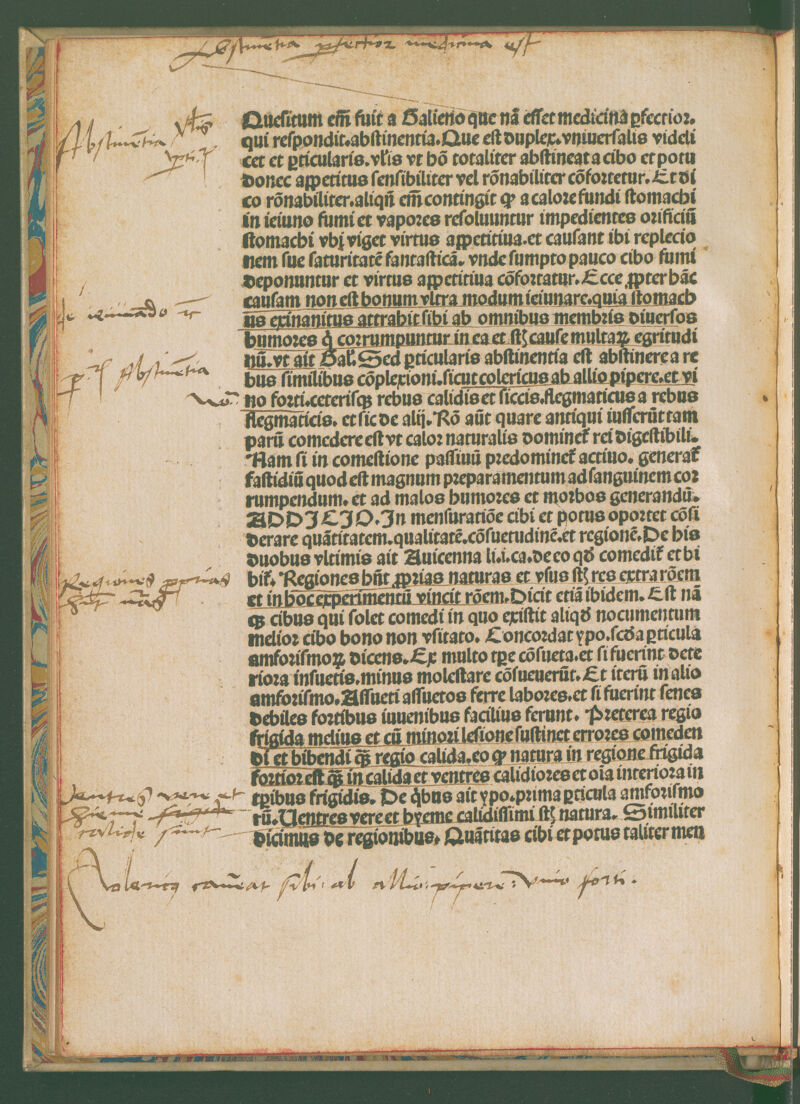 Abstinētia ꝑfectior medicina est
Abstinētia vl̄is
ꝑti
Quesitum em̄ fuit a Galieno que nā esset medicina ꝑfectior.
qui respondit.abstinentia.Que est duplex.vniuersalis videli
cet et ꝑticularis.vl̓is vt hō totaliter abstineat a cibo et potu
donec appetitus sensibiliter vel rōnabiliter cōfortetur. Et di
co rōnabiliter.aliqn̄ em̄ contingit ꝙ a calore fundi stomachi
in ieiuno fumi et vapores resoluuntur impedientes orificiū
stomachi vbi viget virtus appetitiua.et causant ibi replecio
nem siue saturitatē fantasticā. vnde sumpto pauco cibo fumi
deponuntur et virtus appetitiua cōfortatur. Ecce ꝓpter hāc
causam non est bonum vltra modum ieiunare.quia stomach
us exinanitus attrahit sibi ab omnibus membris diuersos
humores q̇ corrumpuntur in ea et st̄ cause multaꝝ egritudi
nū.vt ait Gal. Sed ꝑticularis abstinentia est abstinere a re
bus similibus cōplexioni.sicut colericus ab allio pipere.et vi
no forti.ceterisqꝫ rebus calidis et siccis.flegmaticus a rebus
flegmaticis. et sic de alijs. Rō aūt quare antiqui iusserūt tam
parū comedere est vt calor naturalis dominet̄ rei digestibili.
Nam si in comestione passiuū predominet̄ actiuo. generat̄
fastidiū quod est magnum preparamentum ad sanguinem cor
rumpendum. et ad malos humores et morbos generandū.
ADDICIO. In mensuratiōe cibi et potus oportet cōsi
derare quātitatem.qualitatē.cōsuetudinē.et regionē. De his
duobus vltimis ait Auicenna li.i.ca.de eo qd̄ comedit̄ et bi
bit̄. Regiones hn̄t ꝓprias naturas et vsus st̄ res extra rōem
et in hoc experimentū vincit rōem. Dicit etiā ibidem. Est nā
qꝫ cibus qui solet comedi in quo existit aliqd̄ nocumentum
melior cibo bono non vsitato. Concordat ypo.scd̄a ꝑticula
amforismoꝝ dicens. Ex multo tp̄e cōsueta.et si fuerint dete
riora insuetis.minus molestare cōsueuerūt. Et iterū in alio
amforismo. Assueti assuetos ferre labores.et si fuerint senes
debiles fortibus iuuenibus facilius ferunt. Preterea regio
frigida melius et cū minori lesione sustinet errores comeden
di et bibendi qꝫ̄ regio calida.eo ꝙ natura in regione frigida
fortior est qꝫ̄ in calida et ventres calidiores et oīa interiora in
tp̄ibus frigidis. De q̇bus ait ypo.prima ꝑticula amforismo
rū. Uentres vere et hyeme calidissimi st̄ natura. Similiter
dicimus de regionibus. Quātitas cibi et potus taliter men
de ieiunādo
Abstinētia
no
Regiones ꝓprias
hn̄t nās
Ventres vere et
hieme frigide
calide sunt
Colericꝰ caueat sibi ab allio: pipere: vino forti.